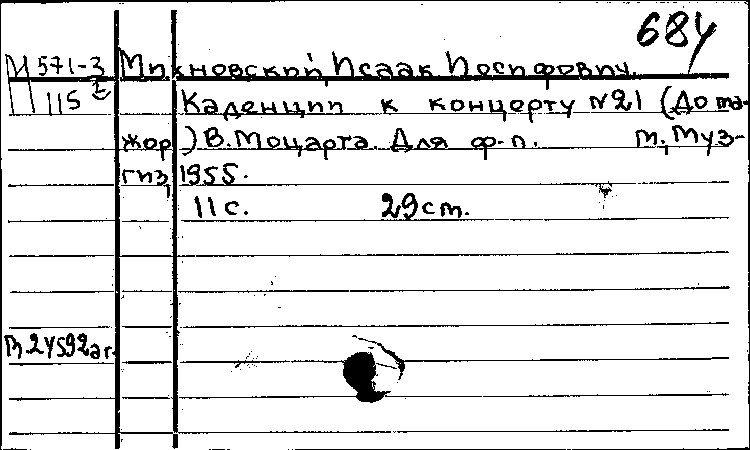 684
М 571-3 Михновский, Исаак Иосифович.
115 Каденции к концерту №21 (До ма-
жор) В. Моцарта. Для ф-п. М., Муз-
гиз, 1955.
11с. 29ст.